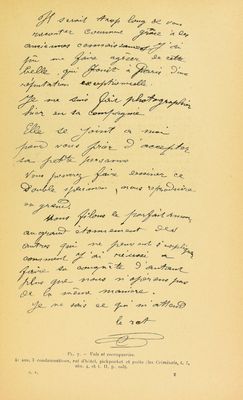 Il serait trop long de vous
raconter comment grâce à des
anciennes connaissances j'ai
pu me faire agréer de cette
belle qui jouit à Paris d'une
réputation exceptionnelle.
Je me suis fait photographier
hier en sa compagnie
Elle se joint à moi
pour vous prier d'accepter
sa petite personne
Vous pourrez faire
double spécimen, nous reproduire
en grand.
Nous filons le parfait amour
au grand étonnement des
autres qui ne peuvent s'expliquer
comment j'ai réussi à
faire sa conquête d'autant
plus que nous n'opérons pas
de la même manière
Je ne sais ce qui m'attend
le rat
Fig. 7. — Vols et escroqueries.
ans, 7 condamnations, rat d'hôtel, pickpocket et poète (les Criminels, t. I,